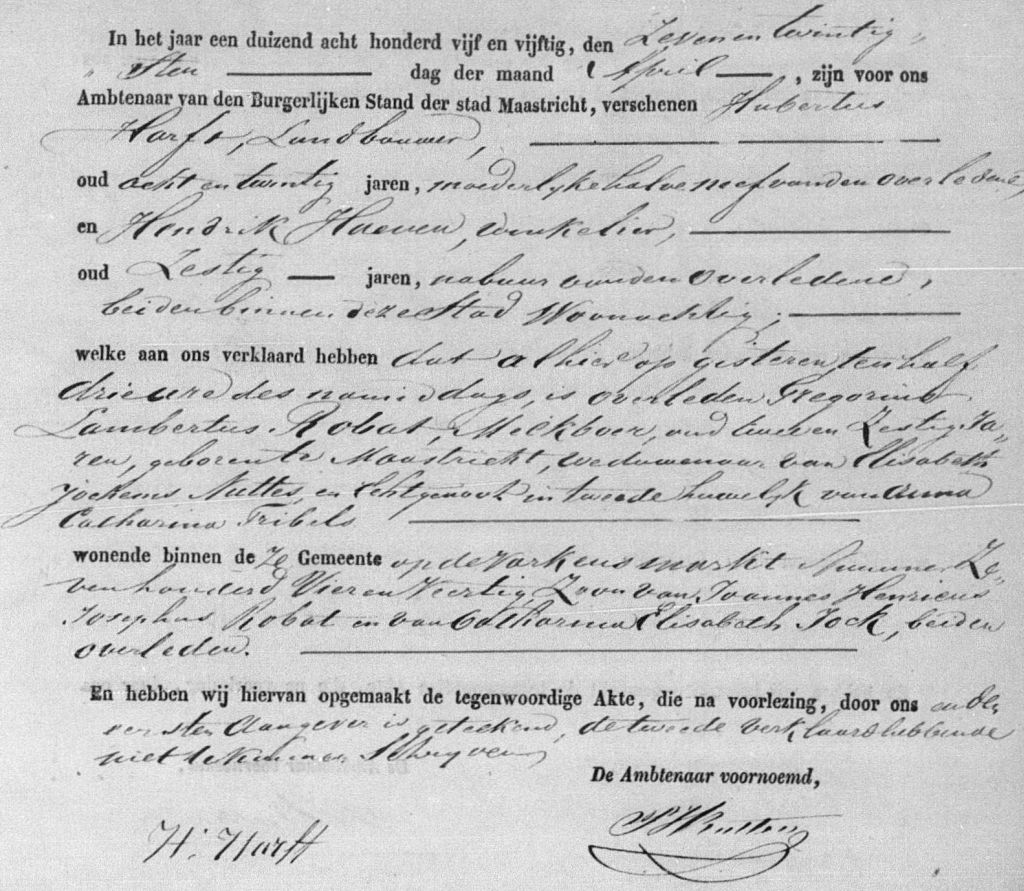 In het jaar een duizend acht honderd vijf en vijftig, den Zevenentwintig
sten dag der maand April, zijn voor ons
Ambtenaar van den Burgerlijken Stand der stad Maastricht, verschenen Hubertus
Harff, Landbouwer,
oud acht en twintig jaren, moederlyke halve neef van den overledene,
en Hendrik Haeven, winkelier,
oud Zestig jaren, nabuur van den overledene,
beiden binnen deze Stad Woonachtig;
welke aan ons verklaard hebben dat alhier op gisteren ten half
drie ure des namiddags, is overleden Gregorius
Lambertus Robat, Melkboer, oud twee en Zestig Ja-
ren, geboren te Maastricht, weduwenaar van Elisabeth
Jockems Nuttes, en Echtgenoot in tweede huwelyk van Anna
Catharina Fribels
wonende binnen deze Gemeente op de Varkensmarkt Nummer Ze-
venhonderd Vier en Veertig Zoon van Joannes Henricus
Josephus Robat en van Catharina Elisabeth Jock, beiden
overleden.
En hebben wij hiervan opgemaakt de tegenwoordige Akte, die na voorlezing, door ons en de
eersten Aangever is geteekend, de tweede verklaard hebbende
niet te kunnen Schryven
De Ambtenaar voornoemd,
H. Harff